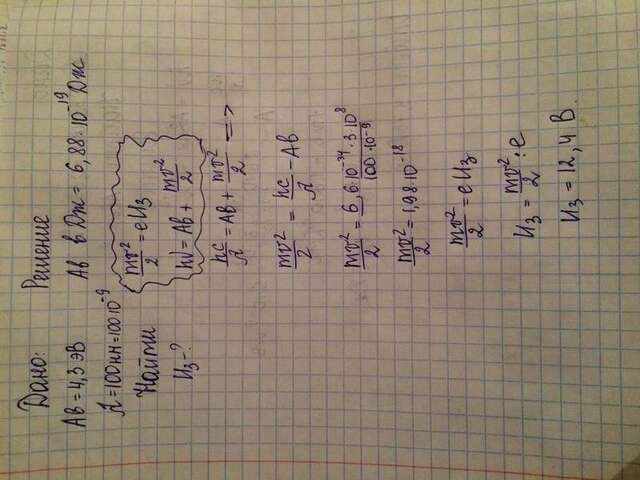 Дано:
Aв = 4,3 эВ
λ = 100 нм = 100 10⁻⁹
Найти
Uз - ?
Решение
Aв в Дж = 6,88 · 10⁻¹⁹ Дж.
mv²/2 = eUз
hν = Aв + mv²/2
hc/λ = Aв + mv²/2 =>
mv²/2 = hc/λ - Aв
mv²/2 = 6,6·10⁻³⁴ · 3·10⁸ / 100·10⁻⁹
mv²/2 = 1,98·10⁻¹⁸
mv²/2 = eUз
Uз = mv²/2 : e
Uз = 12,4 В.